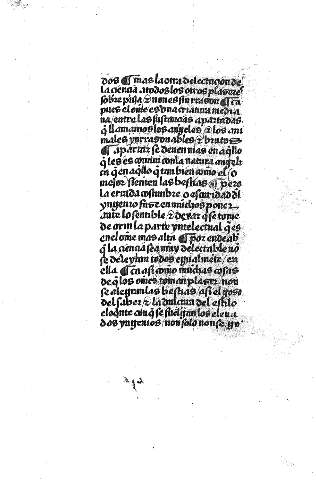 dos ¶ mas la otra delectacion de
la ciencia a todos los otros plazeres
sobre puja & non es sin razon ¶ ca
pues el ome es vna criatura media
na entre las sustancias apartadas
q̃ llamamos los angeles & los ani
males yrrazonables & brutos ¶
apartar se deuen mas en aq̃llo
q̃ les es comun con la natura angeli
ca q̃ en aq̃llo q̃ tan bien como el o
mejor sienten las bestias ¶ pero
la errada costumbre o escuridad dl
yngenio faze en muchos poner
ante lo sensible & dexar q̃ se tome
de orin la parte yntelectual q̃ es
en el ome mas alta ¶ por ende ab
q̃ la ciencia sea muy delectable no
se deleytan todos egualmente en
ella ¶ ca asi como muchas cosas
de q̃ los omes toman plazer non
se alegran las bestias asi el gozo
del saber & la dulcura del estilo
eloq̃nte con q̃ se fuelgan los eleua
dos yngenios non solo non se